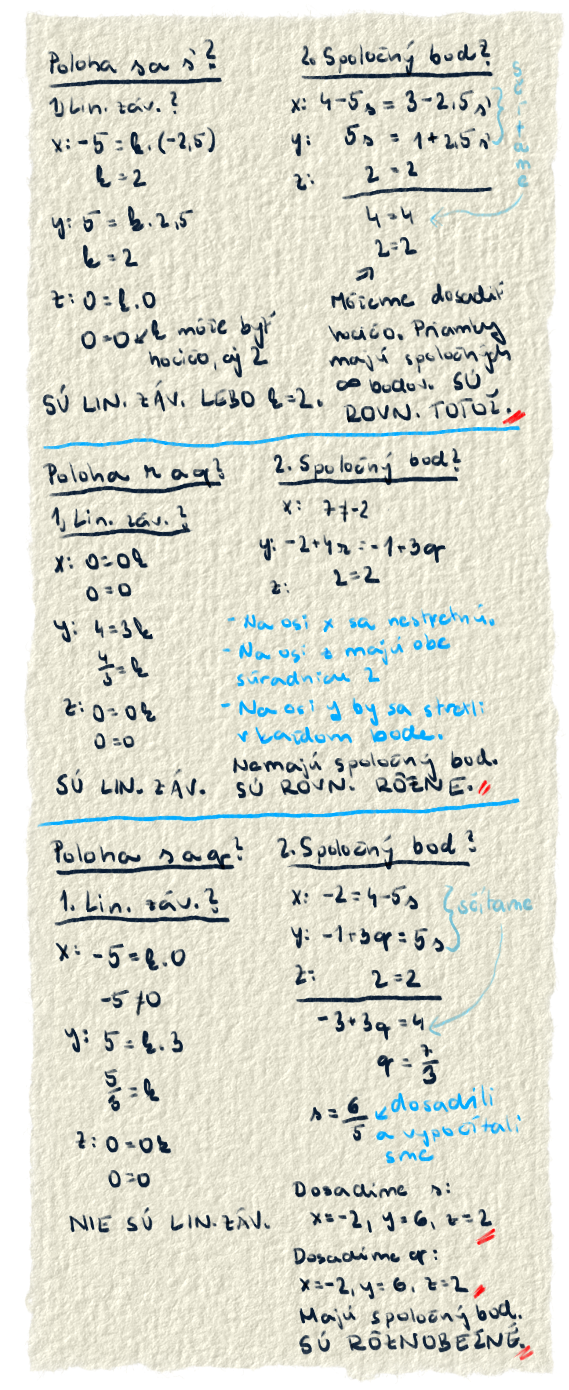 Poloha s a s'?
1) Lin. záv.?
x: -5 = k.(-2,5)
k = 2
y: 5 = k.2,5
k = 2
z: 0 = k.0
0=0 ↙ k môže byť
hocičo, aj 2
SÚ LIN. ZÁV. LEBO k=2.
2. Spoločný bod?
x: 4-5s = 3-2,5s'
y: 5s = 1+2,5s'
z: 2=2
4=4
2=2
Môžeme dosadiť
hocičo. Priamky
majú spoločných
∞ bodov. SÚ
ROVN. TOTOŽ.
Poloha r a q?
1, Lin. záv.?
x: 0=0k
0=0
y: 4=3k
4/3=k
z: 0=0k
0=0
SÚ LIN. ZÁV.
2. Spoločný bod?
x: 7≠-2
y: -2+4r=-1+3q
z: 2=2
- Na osi x sa nestretnú.
- Na osi z majú obe
súradnicu 2
- Na osi y by sa stretli
v každom bode.
Nemajú spoločný bod.
SÚ ROVN. RÔZNE.
Poloha s a q?
1. Lin. záv.?
x: -5=k.0
-5≠0
y: 5=k.3
5/3=k
z: 0=0k
0=0
NIE SÚ LIN.ZÁV.
2. Spoločný bod?
x: -2=4-5s
y: -1+3q=5s
sčítame
z: 2=2
-3+3q=4
q=7/3
s=6/5 ↙ dosadili
a vypočítali
sme
Dosadíme s:
x=-2, y=6, z=2
Dosadíme q:
x=-2, y=6, z=2
Majú spoločný bod.
SÚ RÔZNOBEŽNÉ.